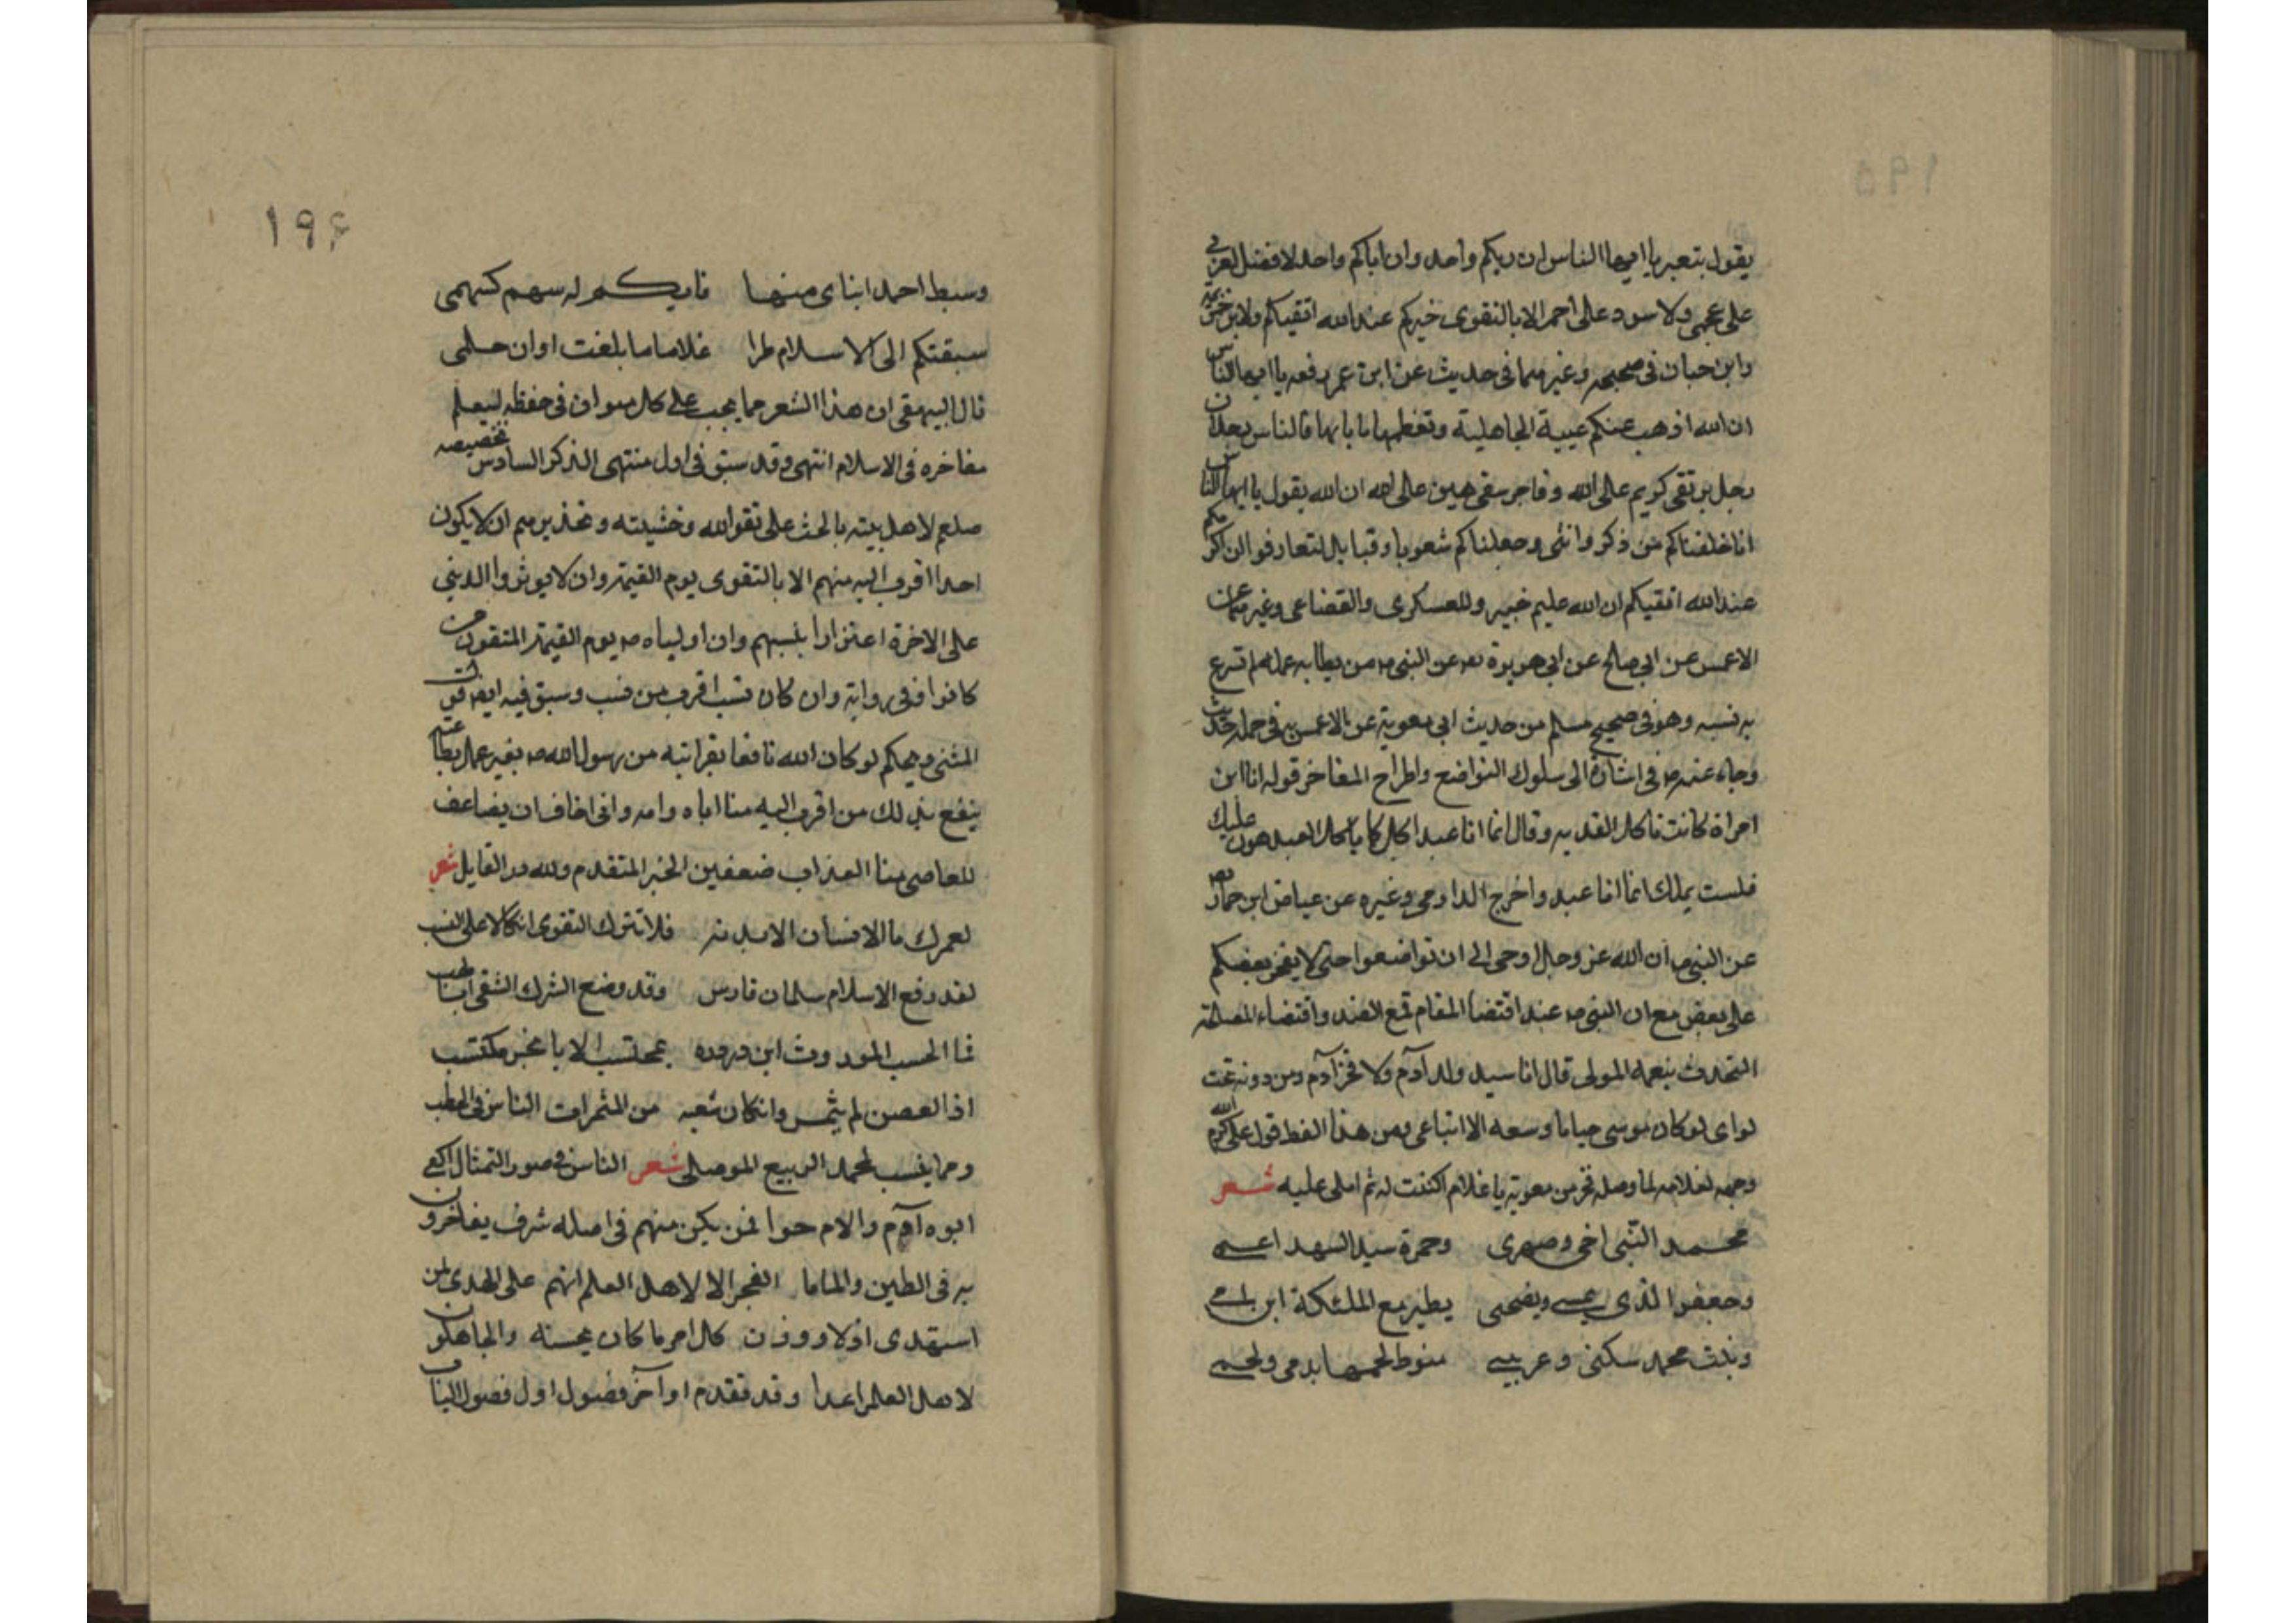 ١٩٥
يقول بتعبر يا ايها الناس ان ربكم واحد وان اباكم واحد لا فضل لعربي
على عجمي ولا سود على احمر الا بالتقوى خيركم عند الله اتقيكم ولابن خزيمه
وابن حبان في صحيحه وغيرهما في حديث عن ابن عمر رفعه يا ايها الناس
ان الله اذهب عنكم عيبة الجاهلية وتعظمها بابائها فالناس رجلان
رجل بر تقي كريم على الله وفاجر شقي هين على الله ان الله يقول يا ايها الناس
انا خلقناكم من ذكر وانثى وجعلناكم شعوبا وقبايل لتعارفوا ان اكرمكم
عند الله اتقيكم ان الله عليم خبير وللعسكرى والقضاعى وغيرهما عن
الاعمس عن ابي صالح عن ابي هريرة عن النبي من يطا به عمله لم تسرع
به نسبه وهو في صحيح مسلم من حديث ابي معوية عن الاعمس به في جمله حديث
وجاء عنه في اشارة الى سلوك التواضع واطراح المفاخر قوله انا ابن
امراة كانت تاكل القديد وقال انما انا عبد اكل كما ياكل العبد هون عليك
فلست بملك انما انا عبد واخرج الدارمي وغيره عن عياض ابن حمار
عن النبي ان الله عز وجل اوحى الى ان تواضعوا حتى لا يفخر بعضكم
على بعض مع ان النبي عند اقتضا المقام قمع الضد واقتضاء المصلحة
التحدث بنعمه المولى قال انا سيد ولد آدم ولا فخر آدم ومن دونه تحت
لواى لو كان موسى حيا ما وسعه الا اتباعى ومن هذا النمط قول على كرم الله
وجهه لغلامه لما وصله فخر من معوية يا غلام اكتب له ثم املى عليه شعر
محمد النبي اخى وصهرى وحمزة سيد الشهدا عمى
وجعفر الذى يمسى ويضحى يطير مع الملئكة ابن امى
وبنت محمد سكنى وعرسى منوط لحمها بدمى ولحمى
١٩۶
وسبط احمد ابناى منها فايكم له سهم كسهمى
سبقتكم الى الاسلام طرا غلاما ما بلغت اوان حلمى
قال البيهقى ان هذا الشعر مما يجب على كل متوان في حفظه ليعلم
مفاخره في الاسلام انتهى وقد سبق في اول منتهى الذكر السادس تخصيصه
صلعم لاهل بيته بالحث على تقوا الله وخشيته وتحذيرهم ان لا يكون
احدا اقرب اليه منهم الا بالتقوى يوم القيمة وان لا يوثروا الدنيى
على الاخرة اعتزازا بنسبهم وان اولياه يوم القيمة المتقون من
كانوا وفي رواية وان كان نسب اقرب من نسب وسبق فيه ايضا قول
المثنى ويحكم لو كان الله نافعا بقرابته من رسول الله بغير عمل بطاعته
ينفع بذلك من اقرب اليه منا اباه وامه وانى اخاف ان يضاعف
للعاصى منا العذاب ضعفين الخبر المتقدم ولله در القايل شعر
لعمرك ما الانسان الا بدينه فلا تترك التقوى اتكالا على النسب
لقد رفع الاسلام سلمان فارس وقد وضع الشرك الشقى ابا لهب
فما الحسب الموروث ابن دروده بمحتسب الا باخر مكتسب
اذ الغصن لم يثمر وانكان شعبه من المثمرات الناس في الحطب
ومما ينسب لمحمد الربيع الموصلى شعر الناس في صور التمثال اكفى
ابوه آدم والام حوا فمن يكن منهم في اصله شرف يفاخرون
به في الطين والما ما الفجر الا لاهل العلم انهم على الهدى لمن
استهدى ادلاء ووزن كل امر ما كان يحسنه والجاهلون
لاهل العلم اعدا وقد تقدم اوآخر فصول اول فصول الباب